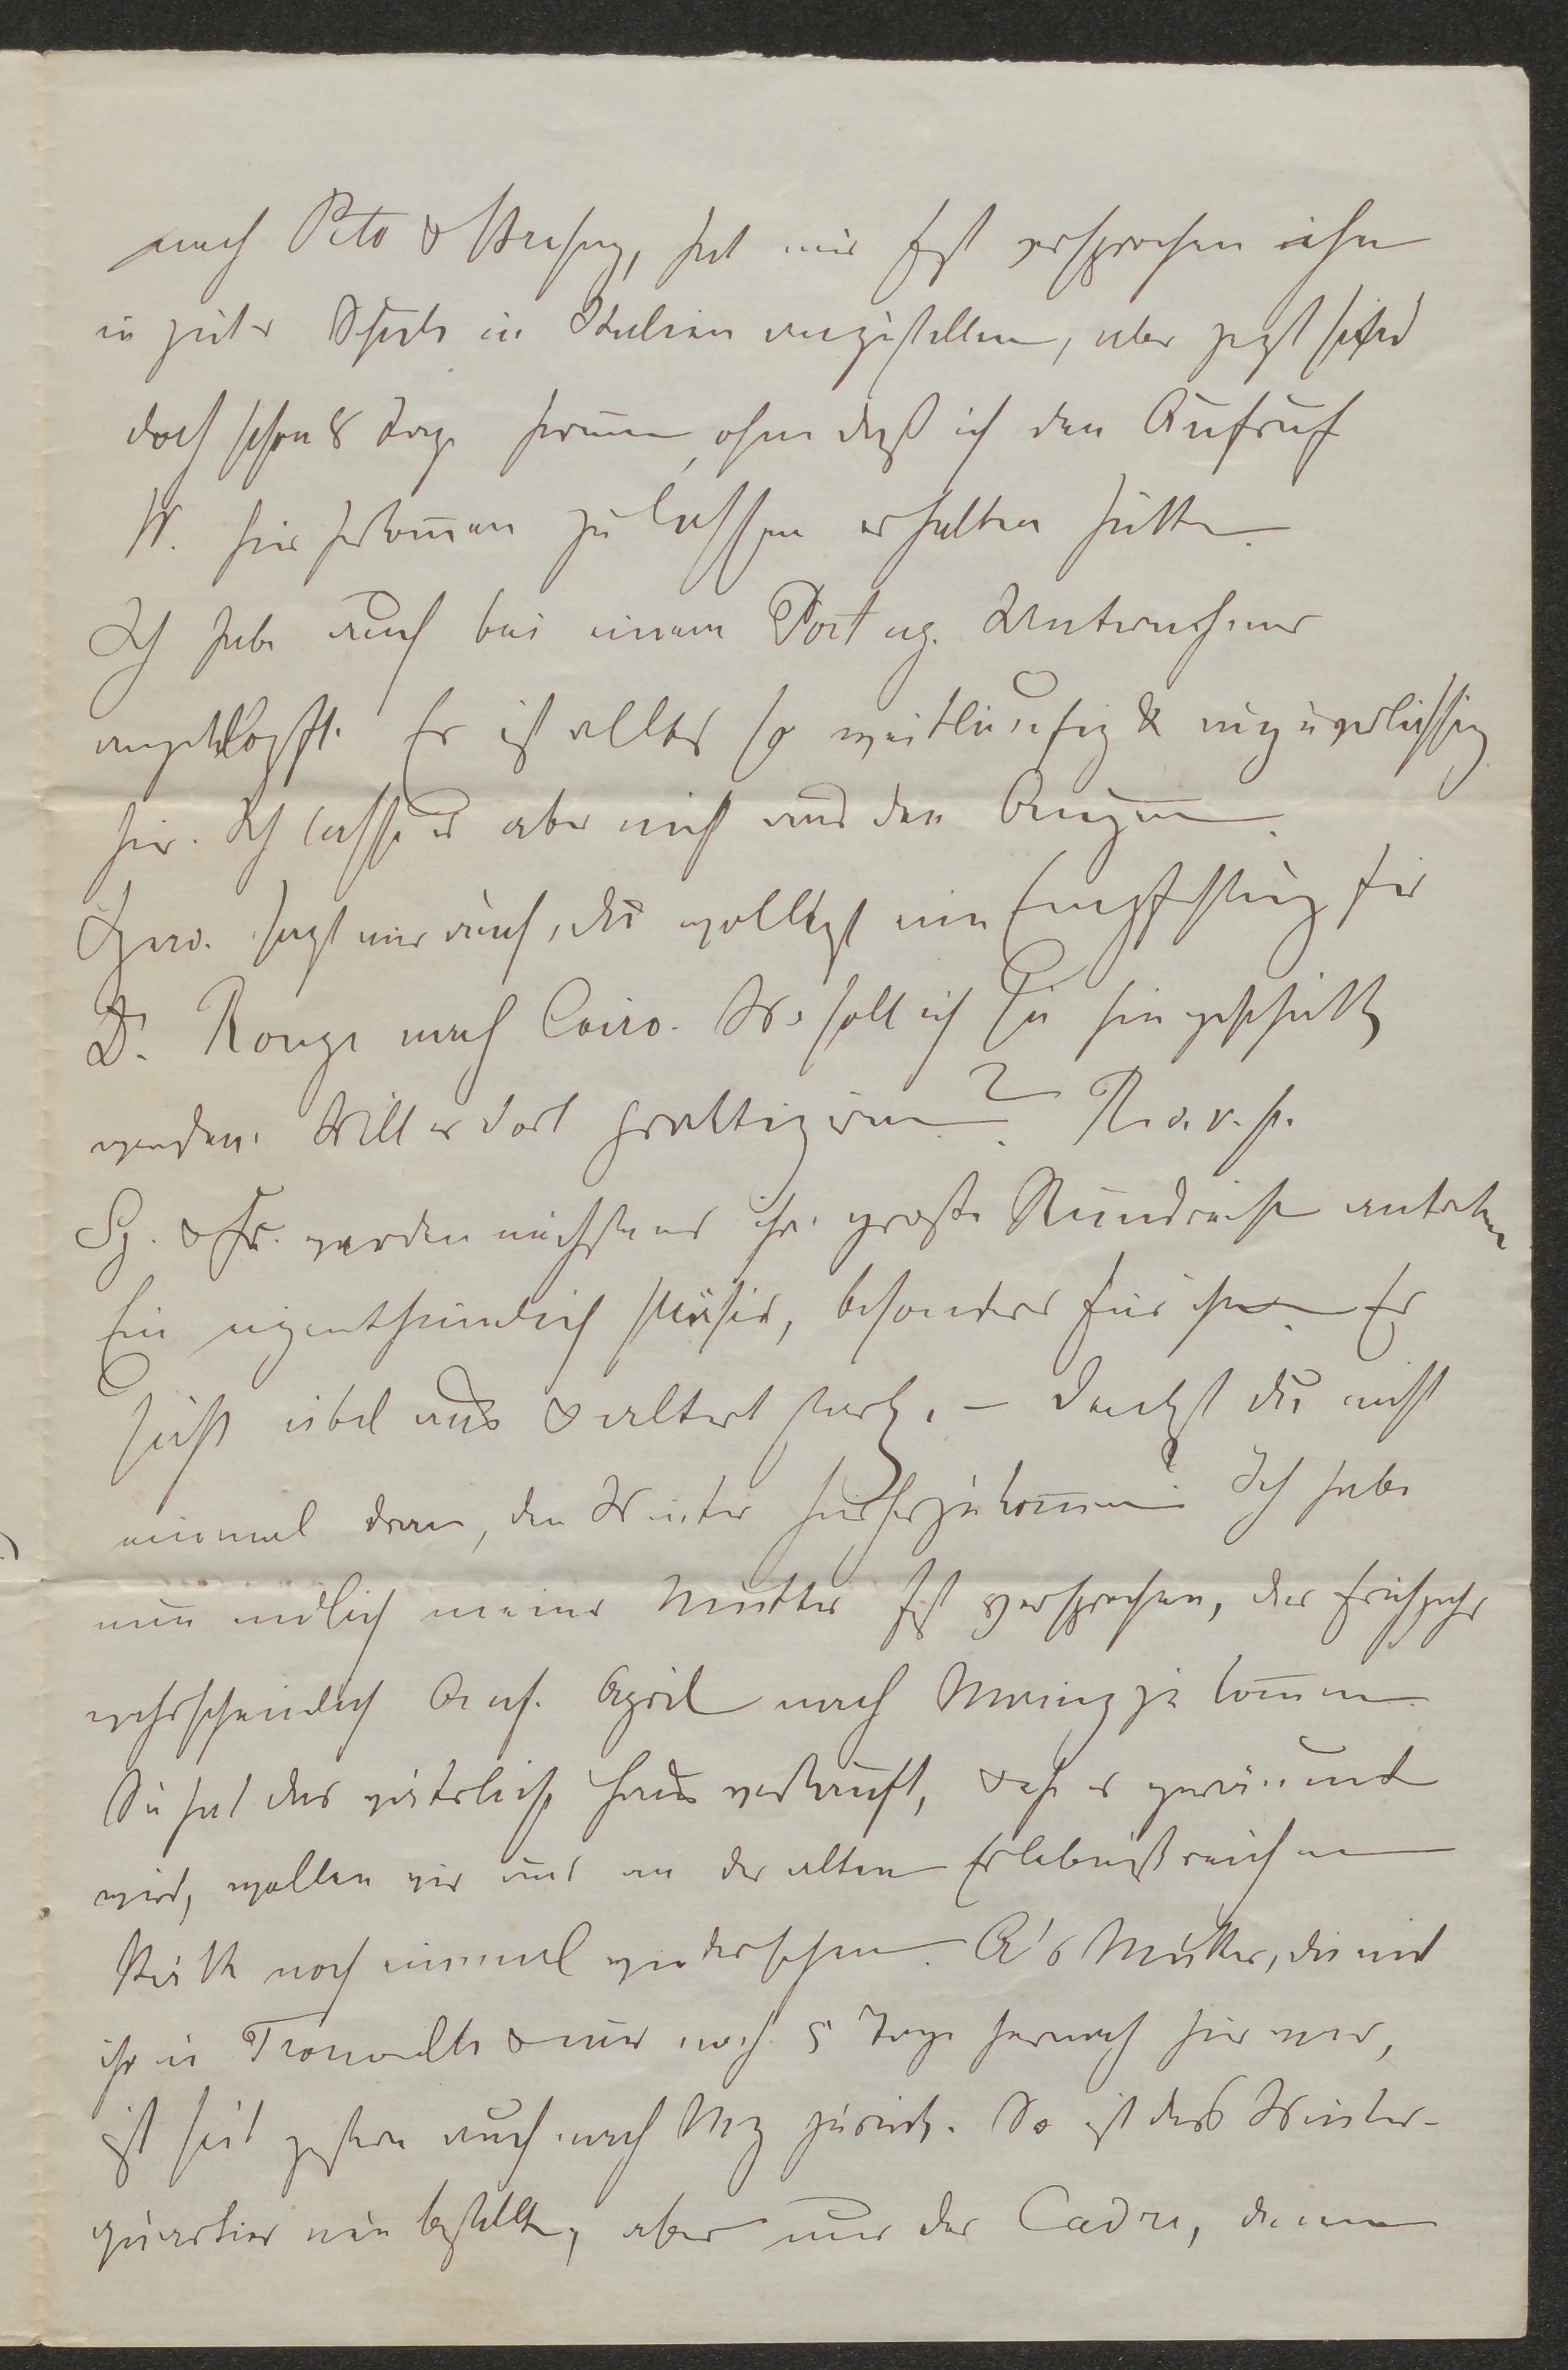 nach Peto & hat mir fest versprochen ihn
in guter Stelle in Italien anzustellen, aber jezt sind
doch schon 8 Tage herum, ohne daß ich den Aufruf
W. hierherkom̄en zu lassen erhalten hätte.
Ich habe auch bei einem Portug. Unternehmer
angeklopft. Es ist alles so weitläufig & unzuverlässig
hier. Ich lasse es aber nicht aus den Augen.
sagt mir auch, du wolltest eine Empfehlung für
D. Ronge nach Cairo. Wo soll ich Sie hingeschickt
werden. Will er dort praktiziren? R. s. v. p.
Sz. & Fr. werden nächstens ihre große Rundreise antreten
Ein eigenthümlich Plaisir, besonders für ihn. Er
sieht übel aus & altert stark. – Denkst du nicht
einmal dran, den Winter hierherzukom̄en? Ich habe
nun endlich meiner Mutter fest versprochen, das Frühjahr
wahrscheinlich Anf. April nach Mainz zu kom̄en.
Sie hat das väterliche Haus verkauft, & eh es geräumt
wird, wollen wir uns an der alten Erlebnißreichen
Stätte noch einmal wiedersehen. A's Mutter, die mit
ihr in Trouville & nur noch 5 Tage hernach hier war,
ist seit gestern auch nach Mz zurück. So ist das Winter-
quartier nun bestellt, aber nur der Cadre, denn